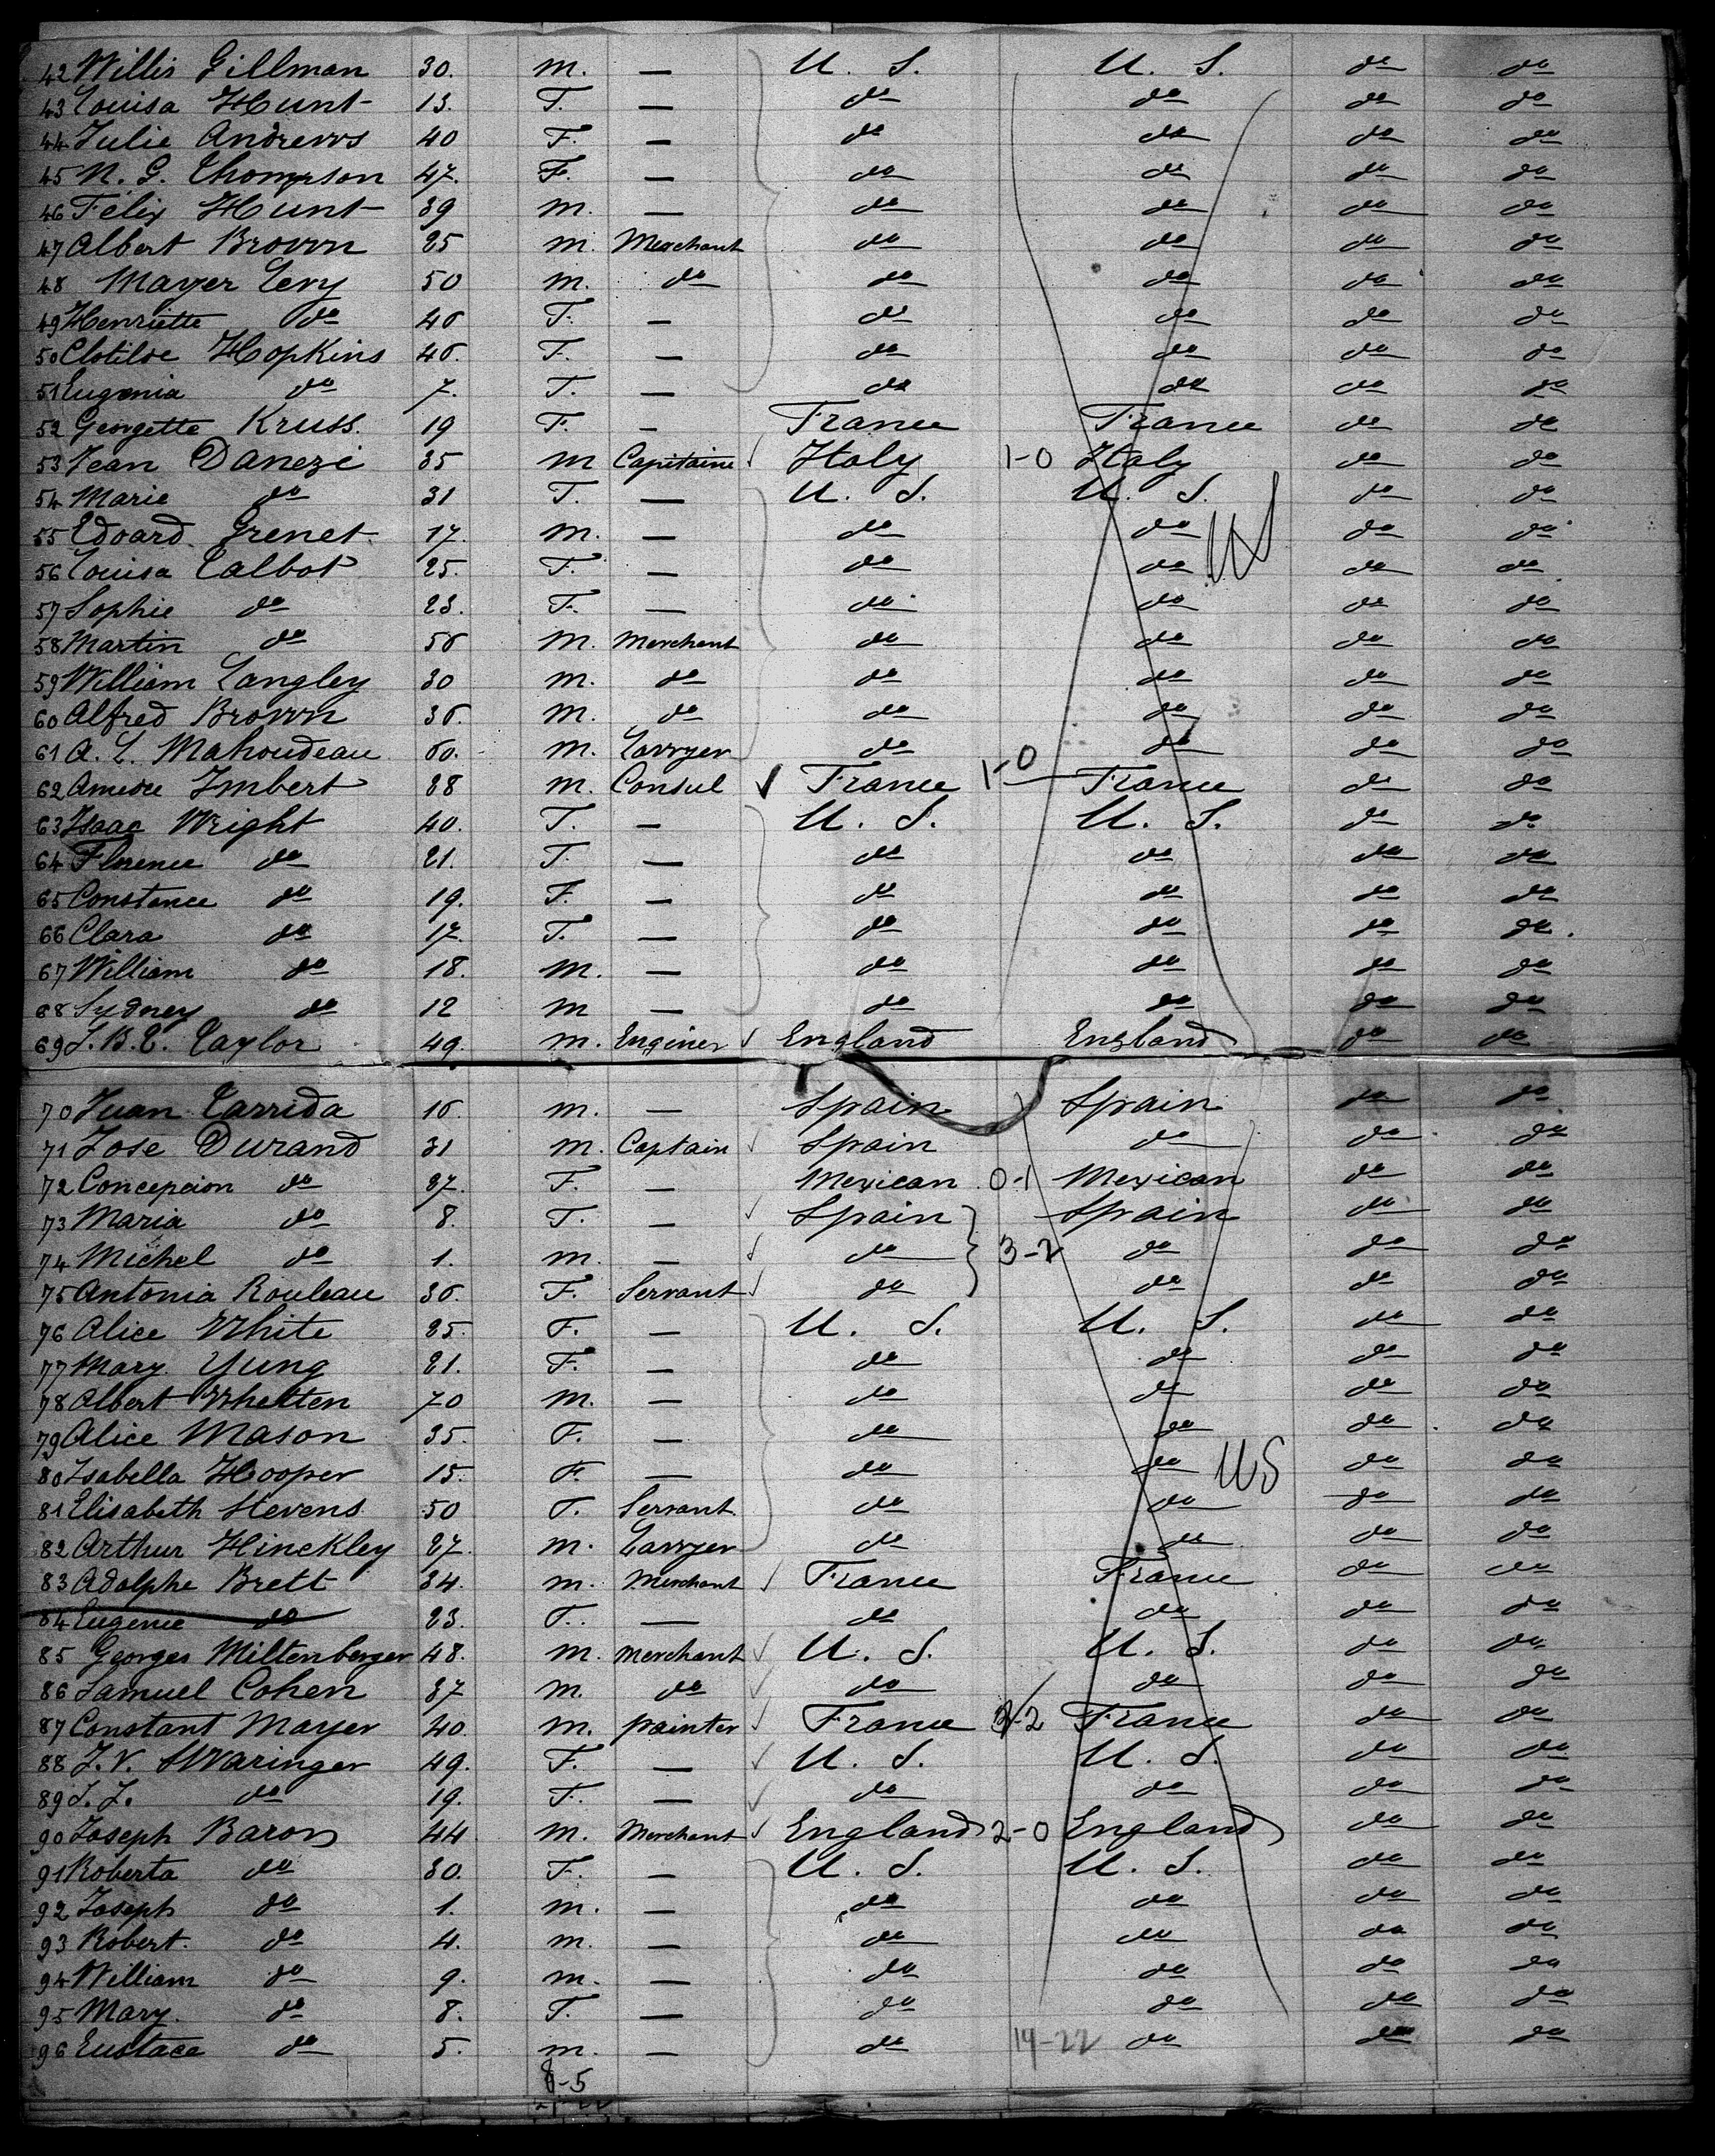 42 Willis Gillman 30. m. — U. S. U. S. do do
43 Louisa Hunt 13. F. — do do do do
44 Julie Andrews 40 F. — do do do do
45 N. G. Thompson 47. F. — do do do do
46 Felix Hunt 39 m. — do do do do
47 Albert Brown 25 m. Merchant do do do do
48 Mayer Levy 50 m. do do do do do
49 Henriette do 46 F. — do do do do
50 Clotilde Hopkins 46. F. — do do do do
51 Eugenia do 7. F. — do do do do
52 Georgette Kruss. 19 F. — France France do do
53 Jean Danezi 35 m Capitaine Italy 1-0 Italy do do
54 Marie do 31 F. — U. S. U. S. do do
55 Edoard Grenet 17. m. — do do do do
56 Louisa Talbot 25. F. — do do US do do
57 Sophie do 23. F. — do do do do
58 Martin do 56 m. Merchant do do do do
59 William Langley 30 m. do do do do do
60 Alfred Brown 36. m. do do do do do
61 A. L. Mahoudeau 60. m. Lawyer do do do do
62 Amedee Imbert 38 m. Consul France 1-0 France do do
63 Isaac Wright 40. F. — U. S. U. S. do do
64 Florence do 21. F. — do do do do
65 Constance do 19. F. — do do do do
66 Clara do 17. F. — do do do do
67 William do 18. m. — do do do do
68 Sydney do 12 m — do do do do
69 S. B. E. Taylor 49. m. Enginer England England do do
70 Juan Tarrida 16. m. — Spain Spain do do
71 Jose Durand 31 m. Captain Spain do do do
72 Concepcion do 37. F. — Mexican 0-1 Mexican do do
73 Maria do 8. F. — Spain Spain do do
74 Michel do 1. m. — do 3-2 do do do
75 Antonia Rouleau 36. F. Servant do do do do
76 Alice White 25. F. — U. S. U. S. do do
77 Mary Yung 21. F. — do do do do
78 Albert Whelten 70 m. — do do do do
79 Alice Mason 35. F. — do do do do
80 Isabella Hooper 15. F. — do do US do do
81 Elisabeth Stevens 50 F. Servant do do do do
82 Arthur Hinckley 27. m. Lawyer do do do do
83 Adolphe Brett 34. m. Merchant France France do do
84 Eugenie do 23. F. — do do do do
85 Georges Miltenberger 48. m. Merchant U. S. U. S. do do
86 Samuel Cohen 37 m. do do do do do
87 Constant Mayer 40. m. painter France 2 France do do
88 J. V. Swaringer 49. F. — U. S. U. S. do do
89 S. J. do 19. F. — do do do do
90 Joseph Baron 44 m. Merchant England 2-0 England do do
91 Roberta do 30. F. — U. S. U. S. do do
92 Joseph do 1. m. — do do do do
93 Robert. do 4. m. — do do do do
94 William do 9. m. — do do do do
95 Mary. do 8. F. — do do do do
96 Eustace do 5. m. — do 19-22 do do do
8-5